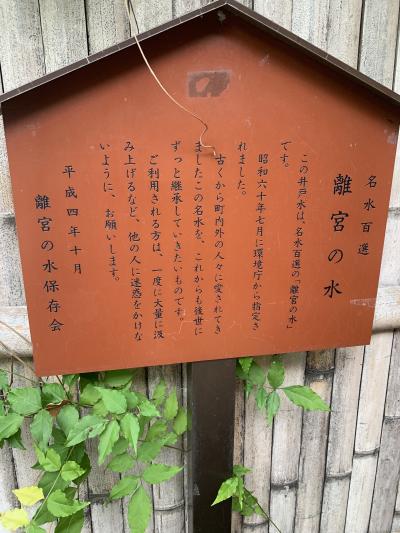 名水百選
離宮の水
この井戸水は、名水百選の「離宮の水」
です。
昭和六十年七月に環境庁から指定さ
れました。
古くから町内外の人々に愛されてき
ましたこの名水を、これからも後世に
ずっと継承していきたいものです。
ご利用される方は、一度に大量に汲
み上げるなど、他の人に迷惑をかけな
いように、お願いします。
平成四年十月
離宮の水保存会